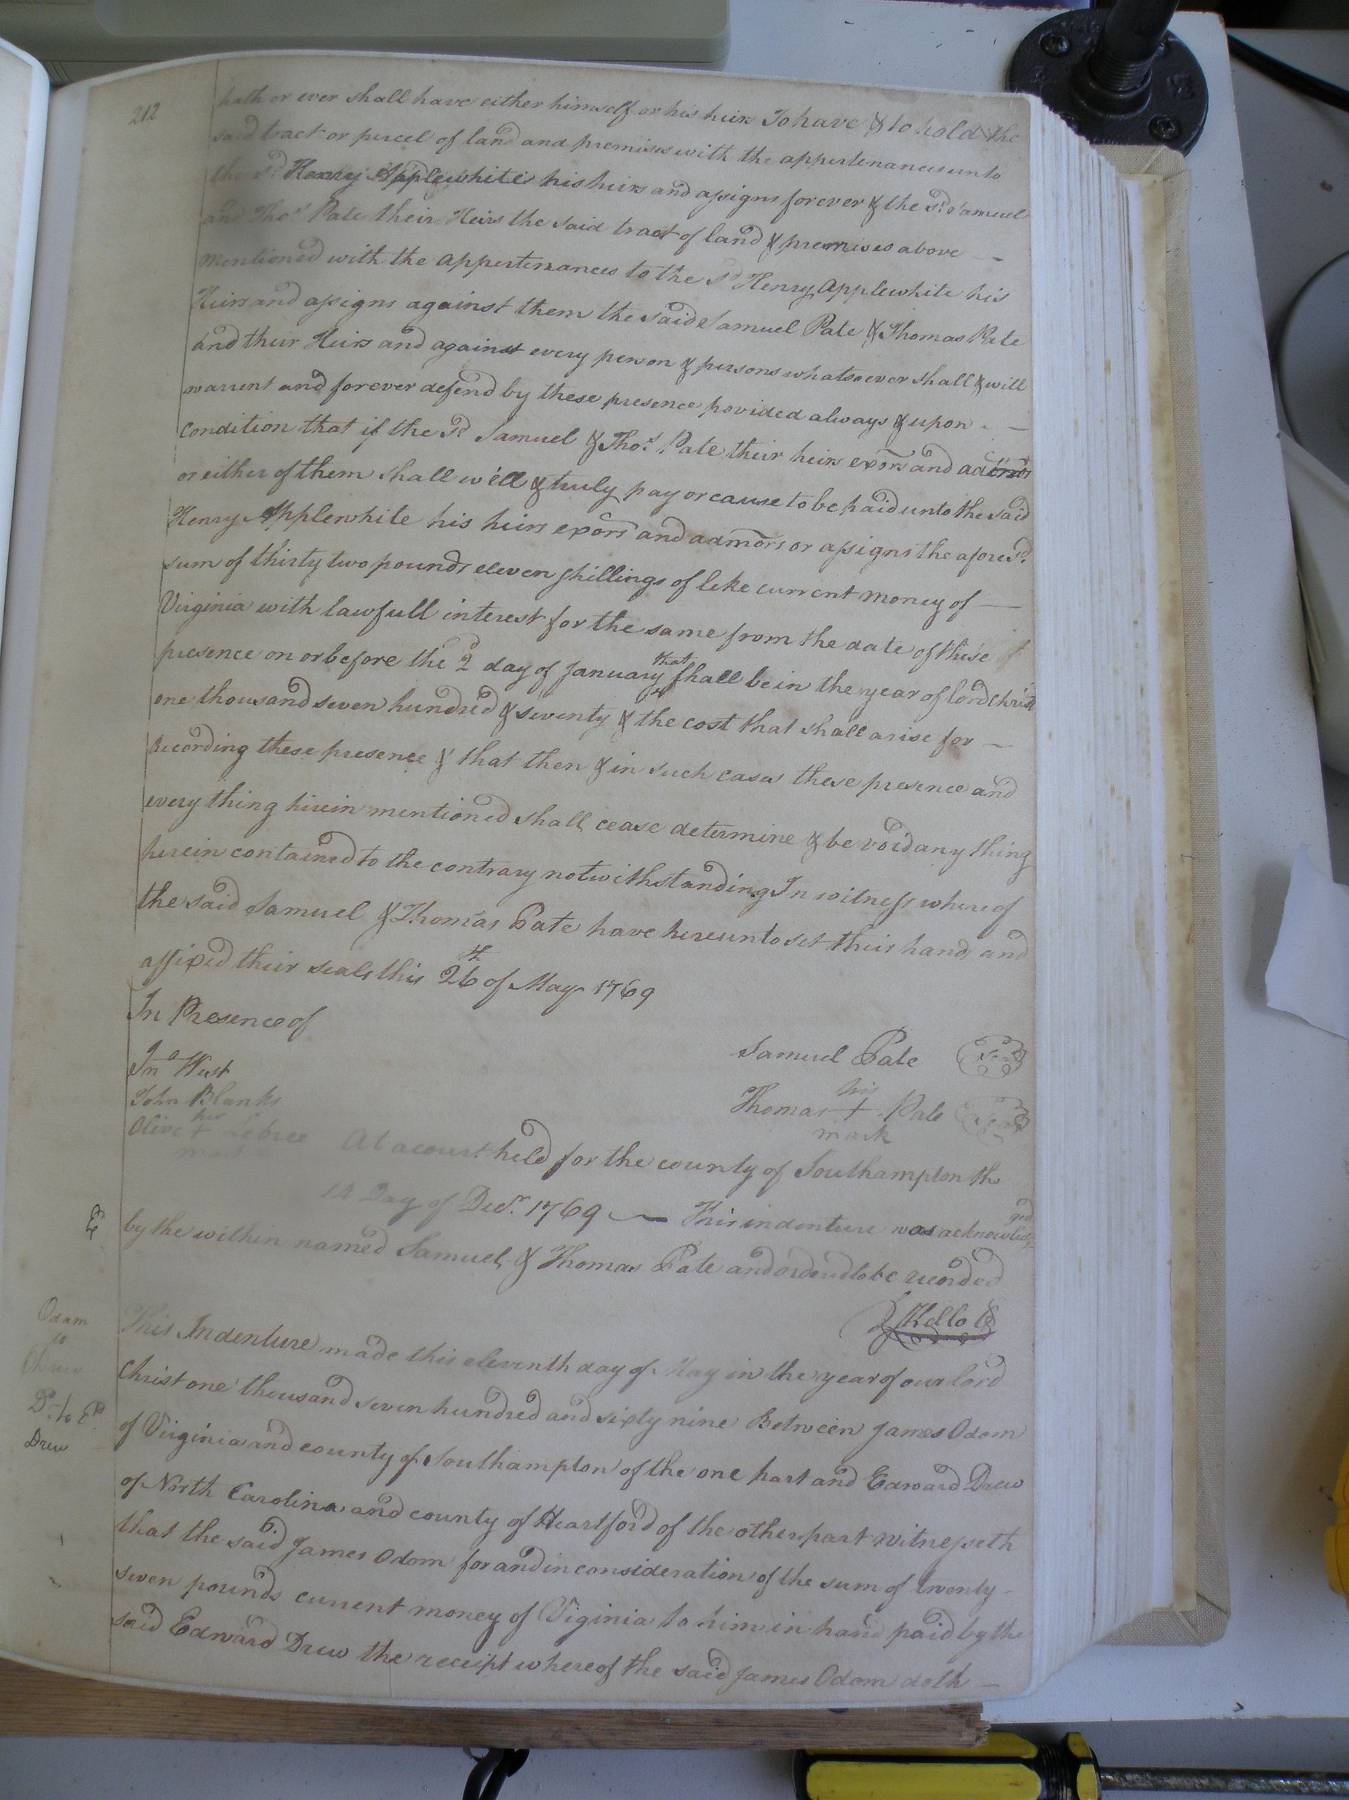 212
hath or ever shall have either himself or his heirs To have & to hold the
said tract or percel of land and premises with the appertenances unto
the sd. Henry Applewhite his heirs and assigns forever & the sd. Samuel
and Thos. Pate their Heirs the said tract of land & premises above —
mentioned with the appertenances to the sd Henry Applewhite his
Heirs and assigns against them the said Samuel Pate & Thomas Pate
and their Heirs and against every person & persons whatsoever shall & will
warrent and forever defend by these presence povided always & upon —
condition that if the sd. Samuel & Thos. Pate their heirs exors and admors
or either of them shall well & truly pay or cause to be paid unto the said
Henry Applewhite his heirs exors and admors or assigns the aforesd.
sum of thirty two pounds eleven shillings of like current money of —
Virginia with lawfull interest for the same from the date of these
presence on or before the 2 day of January that shall be in the year of lord Christ
one thousand seven hundred & seventy & the cost that shall arise for —
recording these presence & that then & in such cases these presence and
every thing herein mentioned shall cease determine & be void any thing
herein contained to the contrary notwithstanding In witness whereof
the said Samuel & Thomas Pate have hereunto set their hands and
affixed their seals this 26th of May 1769
In Presence of
Samuel Pate Seal
Jno. West
John Blanks
Thomas his + mark Pate Seal
Olive her + mark
At a court held for the county of Southampton the
14 Day of Decr. 1769 — This indenture was acknowledged
by the within named Samuel & Thomas Pate and orderd to be recorded
Ex
Kello C
Odam
to
Drew
Dd. to Ed
Drew
This Indenture made this eleventh day of May in the year of our lord
Christ one thousand seven hundred and sixty nine Between James Odom
of Virginia and county of Southampton of the one part and Edward Drew
of North Carolina and county of Heartford of the other part witnesseth
that the said James Odom for and in consideration of the sum of twenty -
seven pounds current money of Viginia to him in hand paid by the
said Edward Drew the receipt whereof the said James Odom doth —